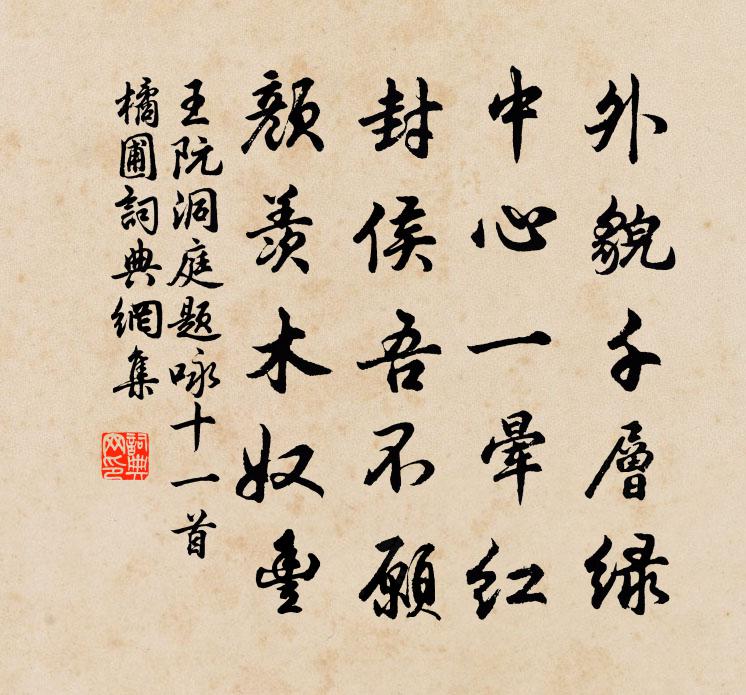 外貌千層緑
中心一暈紅
封侯吾不願
顔羨木奴豐
王阮洞庭题咏十一首
橘圃詞典網集
詞典网印